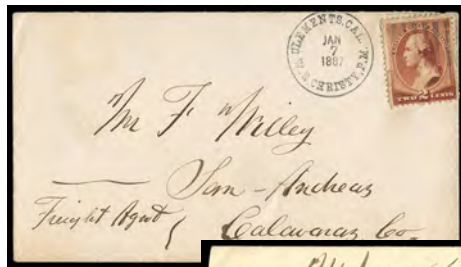 CLEMENTS, CAL.
JAN
7
1887
CHRISTY, P.M.
TWO 2 CENTS
Mr F Willey
San-Andreas
Freight Agent
Calavaras Co.